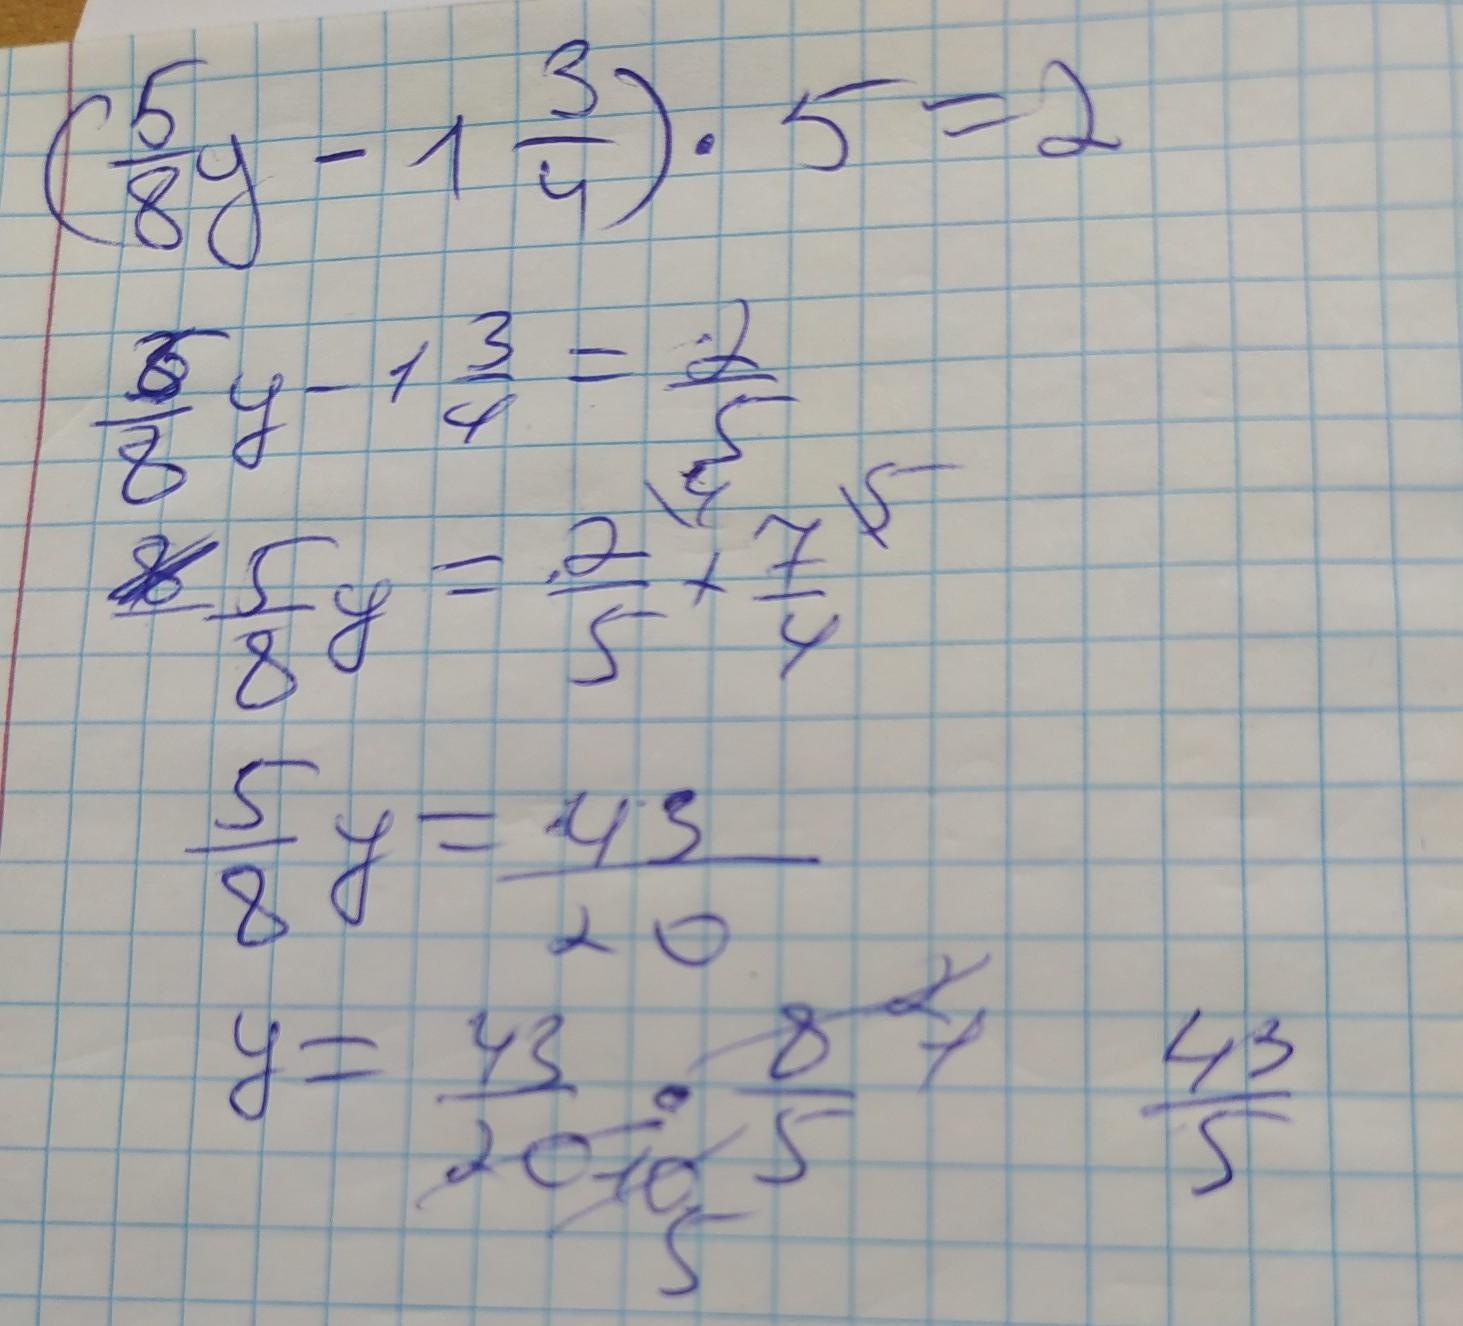 (5/8 y - 1 3/4) · 5 = 2
5/8 y - 1 3/4 = 2/5
5/8 y = 2/5 \4 + 7/4 \5
5/8 y = 43/20
y = 43/20 10 5 · 8/5 2 1 43/5